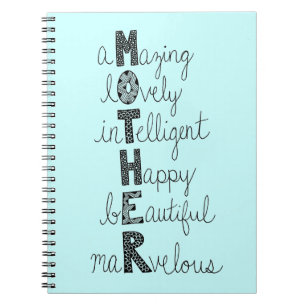 aMazing
lOvely
inTelligent
Happy
bEautiful
maRvelous